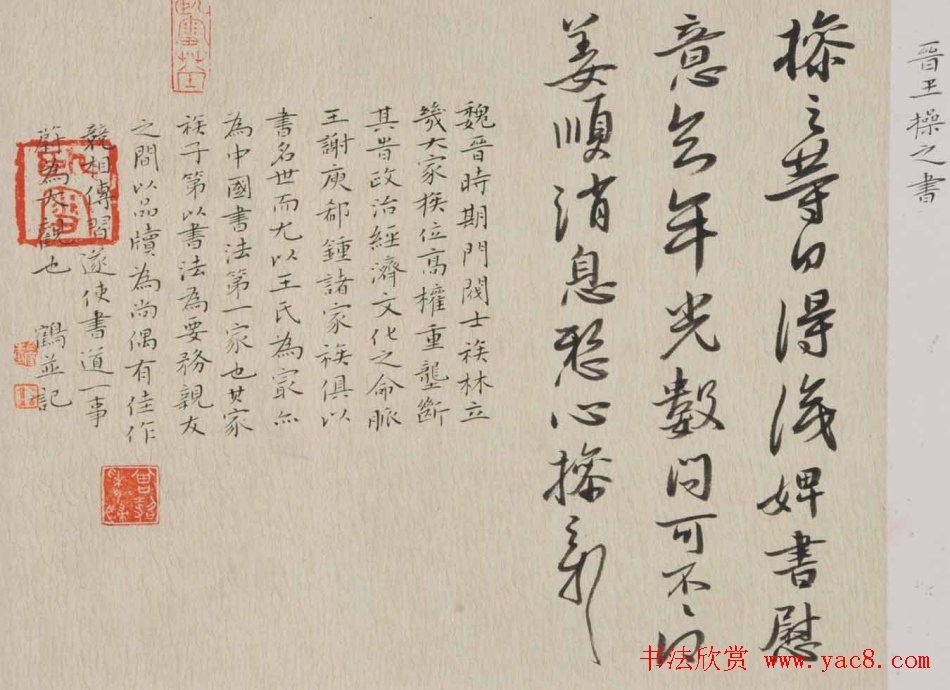 晉王操之書
操之等日得識婢書慰
意念年光數問可不不得
姜順消息懸心操之報
魏晉時期門閥士族林立
幾大家族位高權重壟斷
其皆政治經濟文化之命脈
王謝庾郗鍾諸家族俱以
書名世而尤以王氏為最亦
為中國書法第一家也其家
族子第以書法為要務親友
之間以品牘為尚偶有佳作
競相傳習遂使書道一事
蔚為大觀也 鶴並記
书法欣赏 www.yac8.com